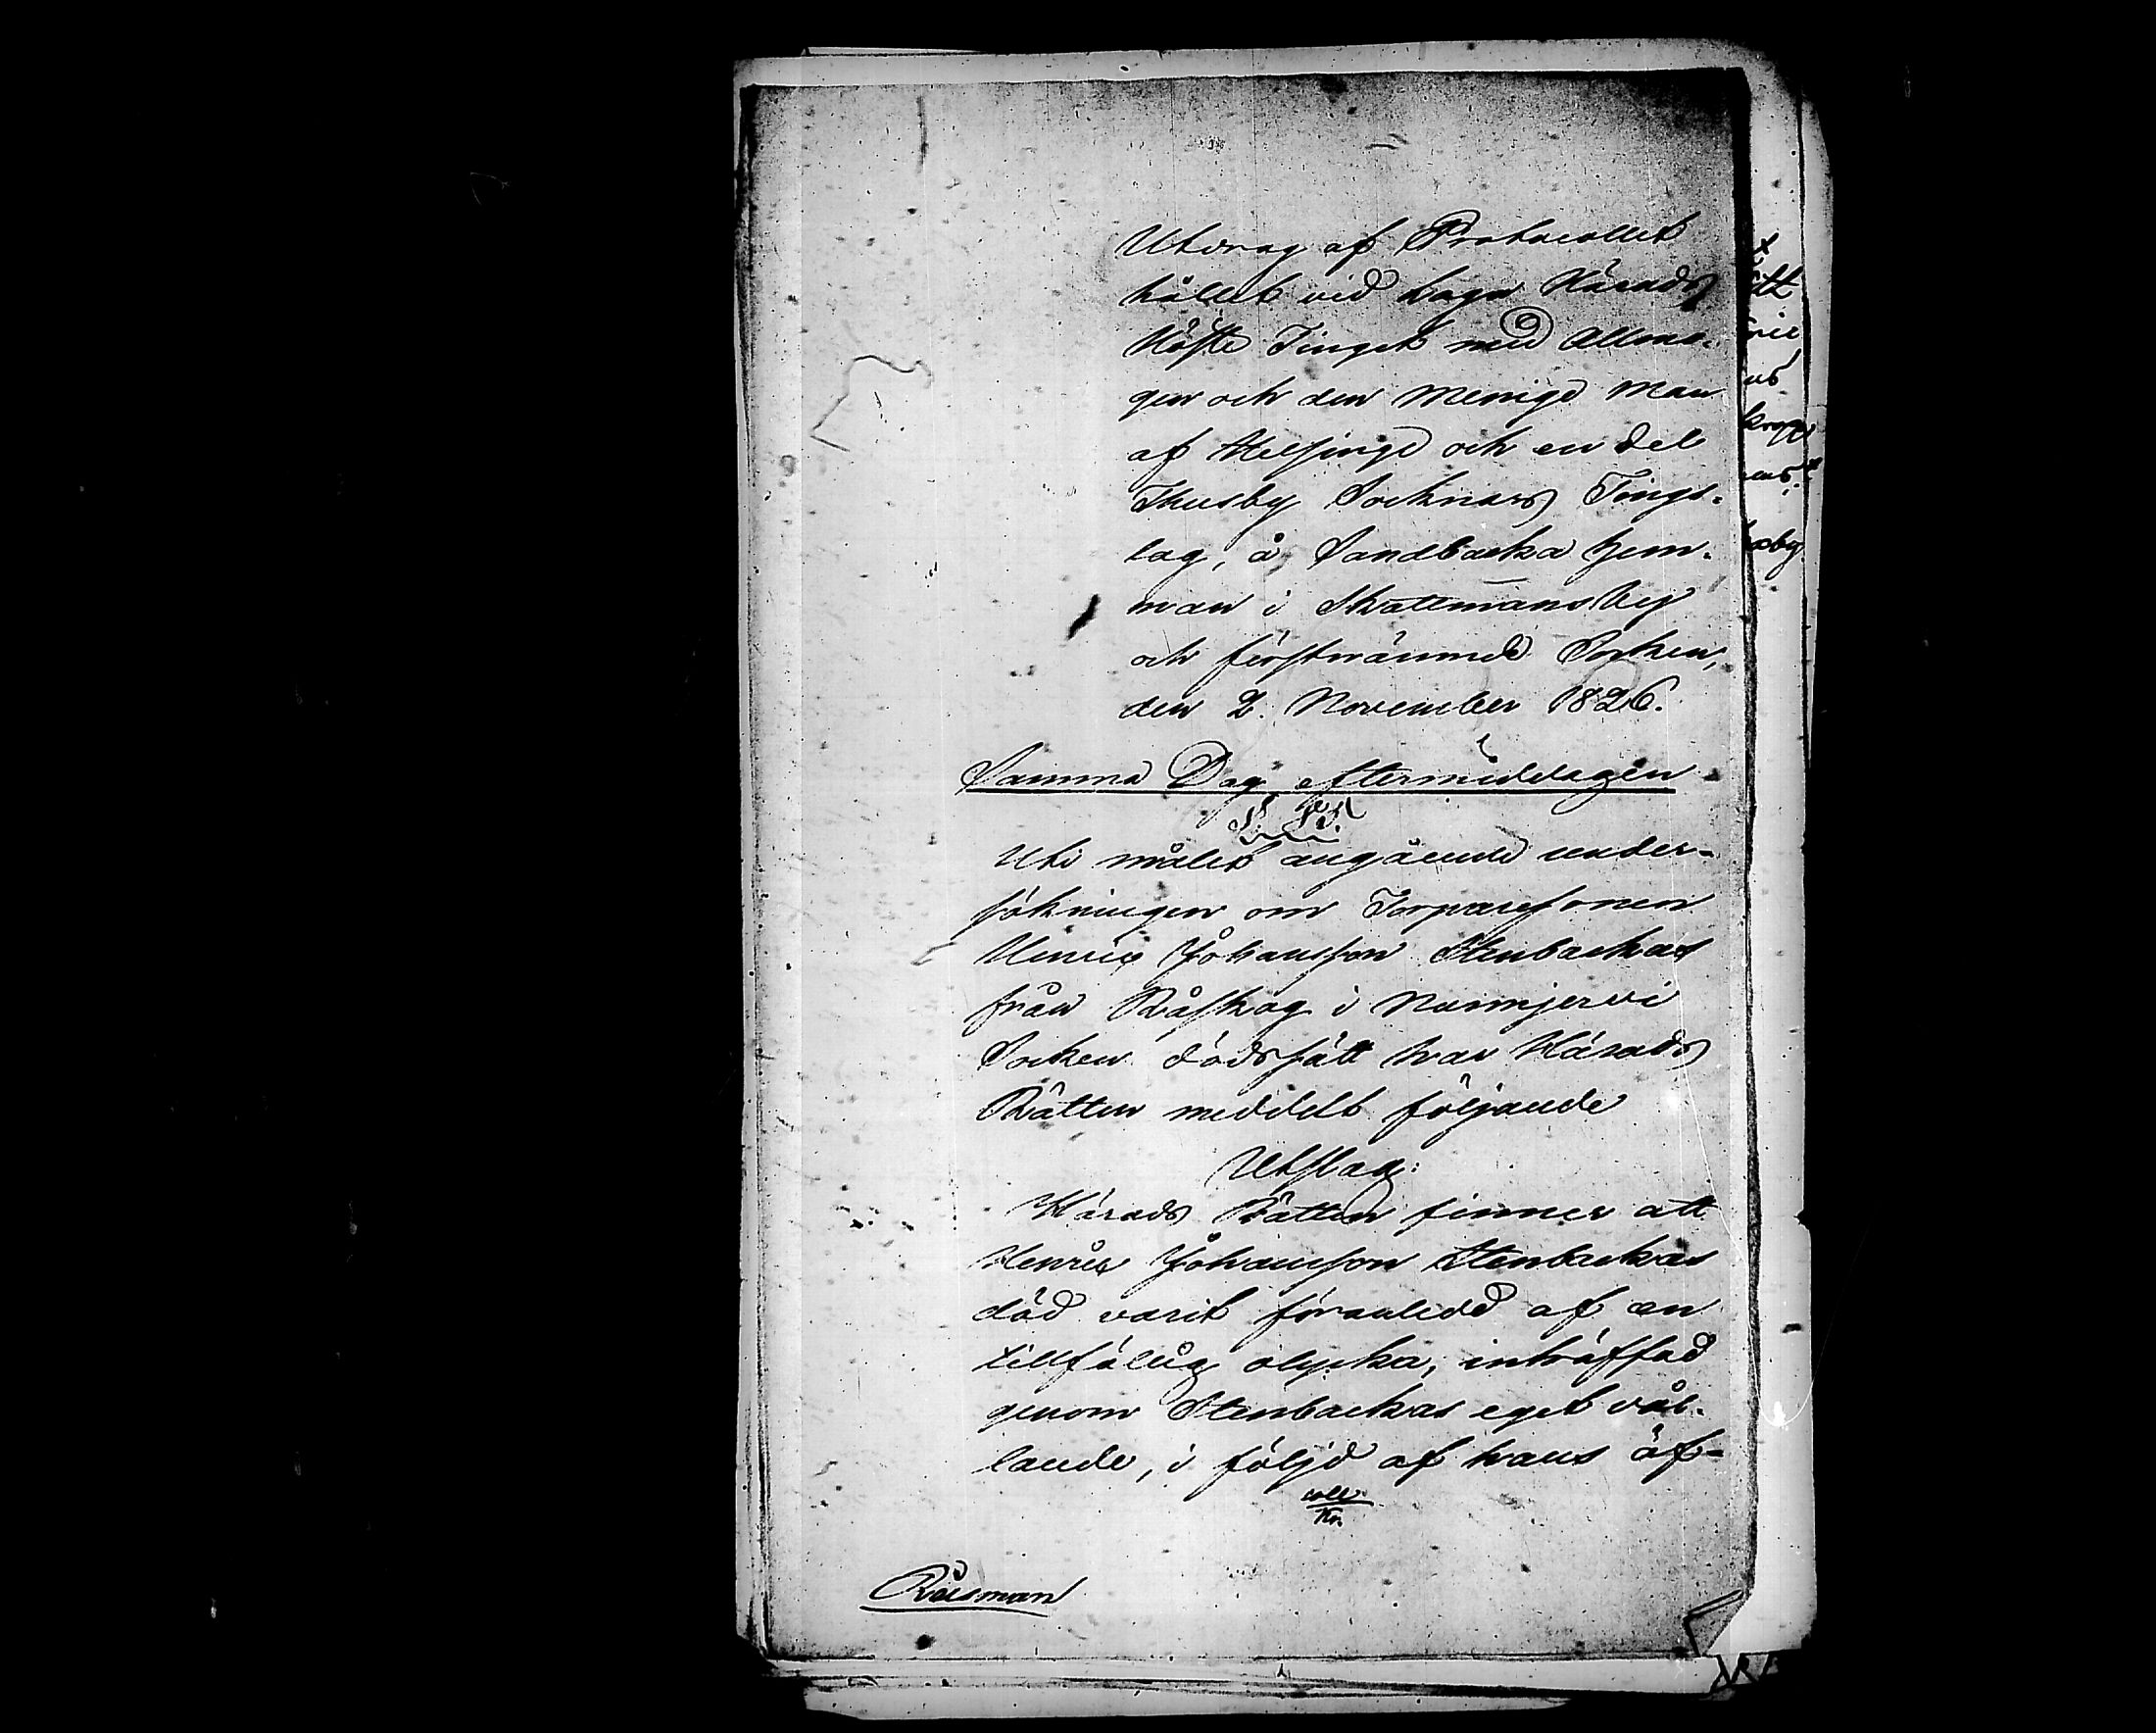 Utdrag af Protocollet
hållet vid Laga Härads
Höste Tinget med Allmo-
gen och den Menige Man
af Helsinge och en del
Thusby Socknars Tings-
lag, å Sandbacka hem-
man i Skattmansby
och förstnämnde Socken,
den 2. November 1826.
Samma Dag eftermiddagen
Uti målet angående under-
sökningen om Torparesonen
Henric Johansson Stenbackas
från Råskog i Nurmjervi
Socken dödssätt har Härads
Rätten meddelt följande
Utslag:
Härads Rätten finner att
Henric Johansson Stenbackas
död varit föranledd af en
tillfällig olycka, inträffad
genom Stenbackas eget vål-
lande, i följd af hans öf-
coll.
Reisman